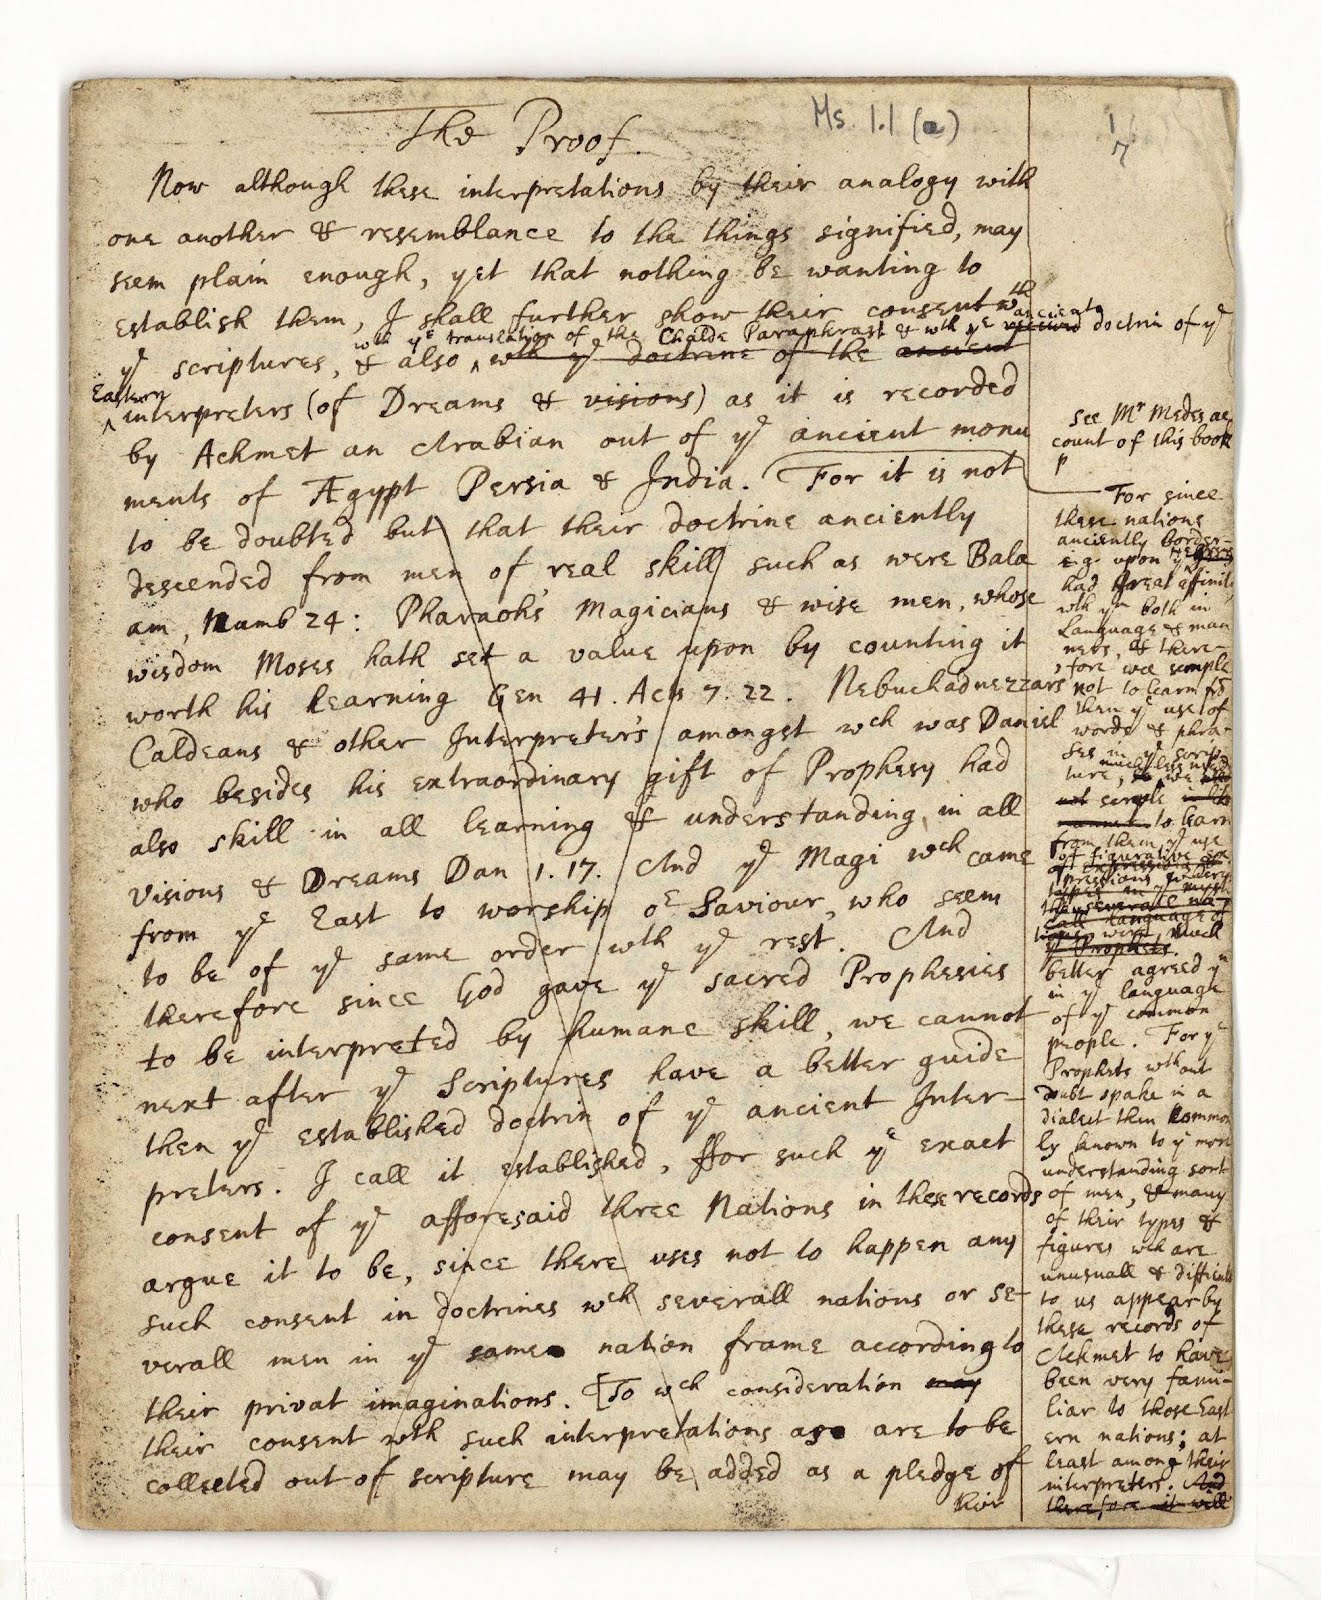 The Proof.
Ms. 1.1 (a)
Now although these interpretations by their analogy with
one another & resemblance to the things signified, may
seem plain enough, yet that nothing be wanting to
establish them, I shall further show their consent wth
wth ye translation of the Chalde Paraphrast & wth ye received ancient doctrin of ye
ye scriptures, & also wth ye doctrine of the ancient
Eastern
interpreters (of Dreams & visions) as it is recorded
by Achmet an Arabian out of ye ancient monu
ments of Ægypt Persia & India. For it is not
to be doubted but that their doctrine anciently
descended from men of real skill such as were Bala
am, Numb 24: Pharaoh's Magicians & wise men, whose
wisdom Moses hath set a value upon by counting it
worth his learning Gen 41. Acts 7. 22. Nebuchadnezzars
Caldeans & other Interpreters amongst wch was Daniel
who besides his extraordinary gift of Prophesy had
also skill in all learning & understanding in all
visions & Dreams Dan 1. 17. And ye Magi wch came
from ye East to worship or Saviour, who seem
to be of ye same order wth ye rest. And
therefore since God gave ye sacred Prophesies
to be interpreted by humane skill, we cannot
next after ye Scriptures have a better guide
then ye established doctrin of ye ancient Inter-
preters. I call it established, ffor such ye exact
consent of ye afforesaid three Nations in these records
argue it to be, since there uses not to happen any
such consent in doctrines wch severall nations or se-
verall men in ye same nation frame according to
their privat imaginations. [To wch consideration may
their consent wth such interpretations as are to be
collected out of scripture may be added as a pledge of
their
17
see Mr Medes ac
count of this book
p
For since
these nations
anciently border-
ing upon ye
had great affinity
wth ym both in
Language & man
ners, & there-
fore wee scruple
not to learn from
them ye use of
words & phra-
ses in ye scrip-
ture, much less need we
not scruple
to learn
from them ye use
of figurative ex-
pressions
they were much
ye Prophets.
better agreed yn
in ye language
of ye common
people. For ye
Prophets without
doubt spake in a
dialect then common
ly known to ye more
understanding sort
of men, & many
of their types &
figures wch are
unusuall & difficult
to us appear by
these records of
Achmet to have
been very fami-
liar to those East
ern nations; at
least among their
interpreters. And
therefore it will